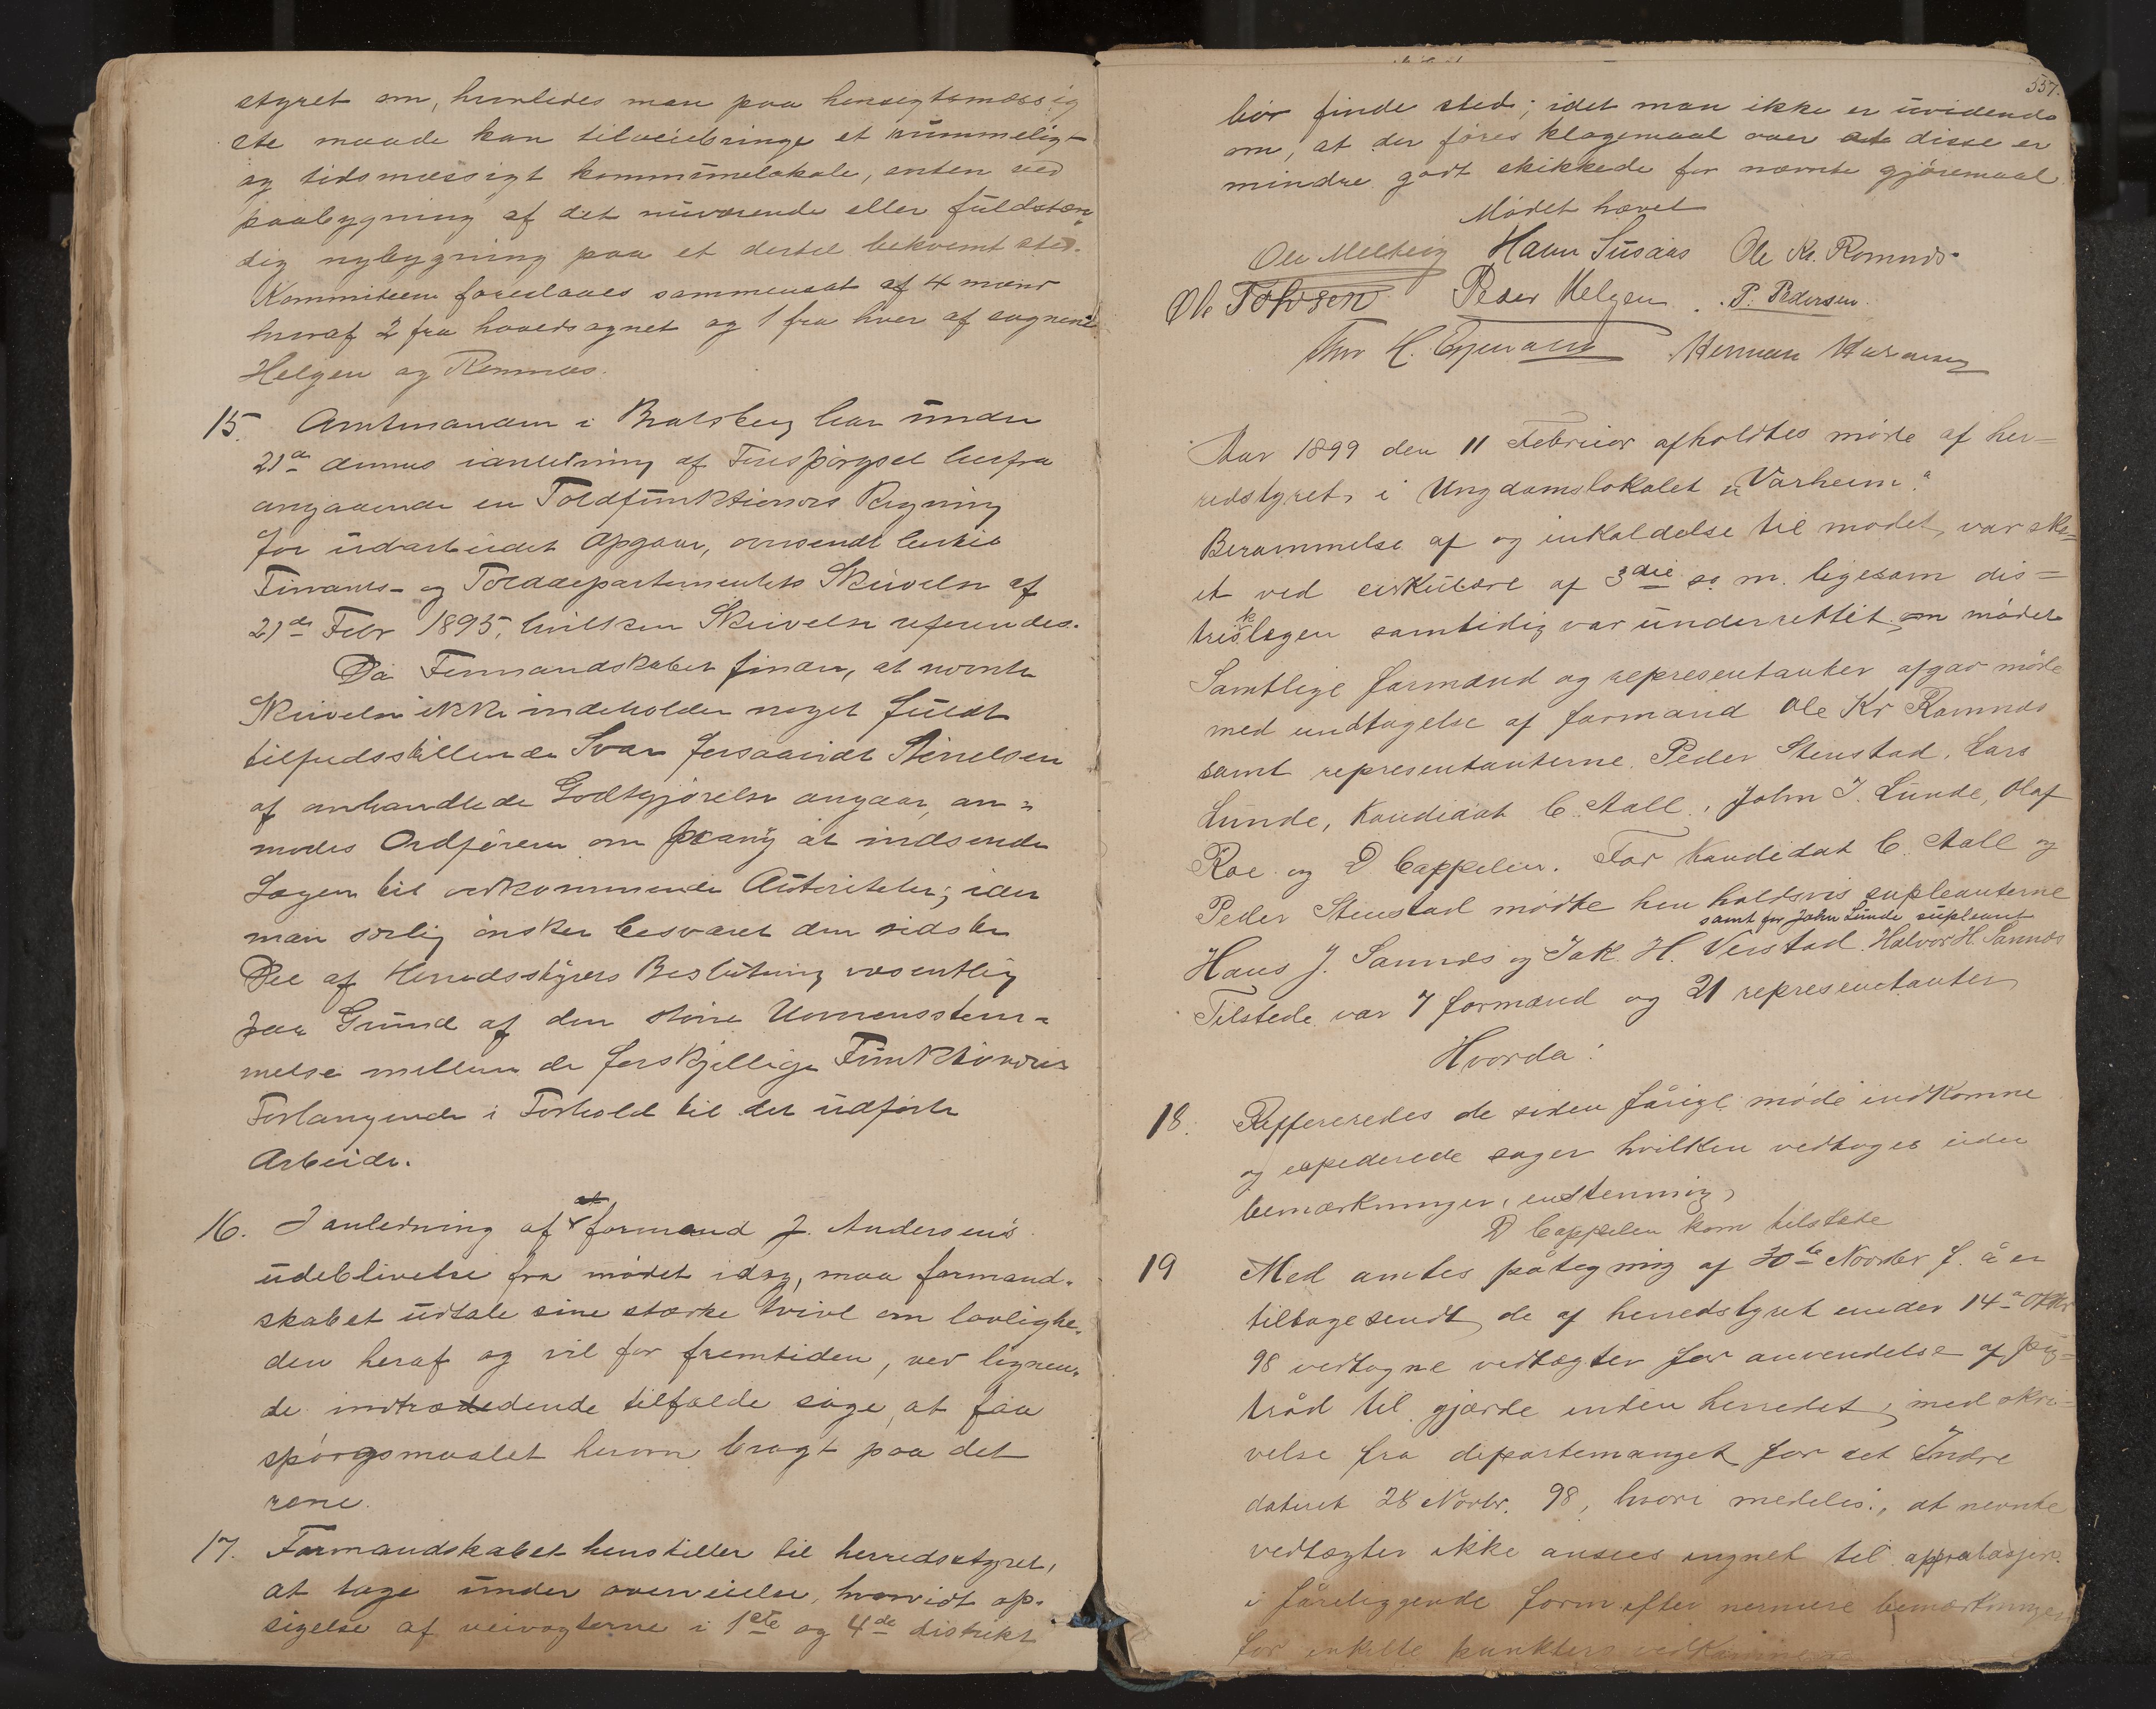 styret om, hvorledes man paa hensegtsmæssig
ste maade kan tilveiebringe et rummelig-
og tidsmæssigt kommunelokale, enten ved
paabygning af det nuværende eller fuldstæn
dig nybygning paa et dertil bekvemt sted.
Kommiteen foreslaaes sammensat af 4 mænd
hvoraf 2 fra hovedsognet og 1 fra hver af sognene
Helgen og Romnæs.
15. Amtmanden i Bratsberg har under
21de dennes ianledning af Forespørgsel herfra
angaaende en Toldfunktionærs Regning
for udarbeidet Opgaver, oversendt
Finants- og Tolddepartementets Skrivelse af
21de Febr 1895, hvilken Skrivelse refereredes.
Da Formandskabet finder, at nævnte
Skrivelse ikke indeholder noget fuldt
tilfredsstillende Svar forsaavidt Størrelsen
af omhandlede Godtgjørelse angaar, an-
modes Ordføreren om paany at indsende
Sagen til vedkommende Autoriteter; idet
man særlig ønsker besvaret den sidste
Del af Herredsstyrets Beslutning væsentlig
paa Grund af den store Uovernsstem-
melse mellem de forskjellige Funktionærers
Forlangende i Forhold til det udførte
Arbeide.
16. I anledning af formand J. Andersens
udeblivelse fra mødet idag, maa formand-
skabet udtale sine stærke tvivl om lovlighe-
den heraf og vil for fremtiden, ved lignen-
de indtrædedende tilfælde søge at faa
spørgsmaalet herom bragt paa det
rene.
17. Formandskabet henstiller til herredsstyret,
at tage under overveielse, hvorvidt op-
sigelse af veivogterne i 1ste og 4de distrikt
557.
bør finde sted; idet man ikke er uvidende
om, at der føres klagemaal over at disse er
mindre godt skikkede for nævnte gjøremaal
Mødet hævet
Ole Melteig Hans Susaas Ole Kr. Romnæs
Ole Tovsen Peder Helgen P. Pedersen
Thor H. Herman
Aar 1899 den 11 Februar afholdtes møde af her=
redstyret, i Ungdomslokalet „Varheim".
Berammelse af og inkaldelse til mødet, var ske=
et ved cirkulære af 3die ds. m. ligesom dis=
triktslægen samtidig var underrettet om mødet
Samtlige formænd og representanter afgav møde
med undtagelse af formand Ole Kr Romnæs
samt representanterne Peder Stenstad, Lars
Lunde, Kandidat C. Aall, John J. Lunde, Olaf
Roe og D Cappelen. For Kandidat C. Aall og
Peder Stenstad mødte hen holdsvis supleanterne
samt for John Lunde supleant
Hans J. Sannes og Jak. H. Verstad Halvor H. Sannes
Tilstede var 7 formænd og 21 representanter
Hvorda:
18. Reffereredes de siden forige møde indkomne
og expederede sager hvilken vedtoges uden
bemærkninger, enstemmig,
D Cappelen kom tilstede
19 Med amtes påtegning af 30te Novbr f. å er
tilbagesendt de af herredstyret under 14de Oktbr
98 vedtagne vedtægter for anvendelse af pig=
tråd til gjærde inden herredet, med skri=
velse fra departemanget for det Indre
dateret 28 Novbr. 98, hvori medeles, at nevnte
vedtægter ikke ansees engnet til approbasjon
i foreliggende form efter nermere bemærkninger
for enkelte punkters vedkommende